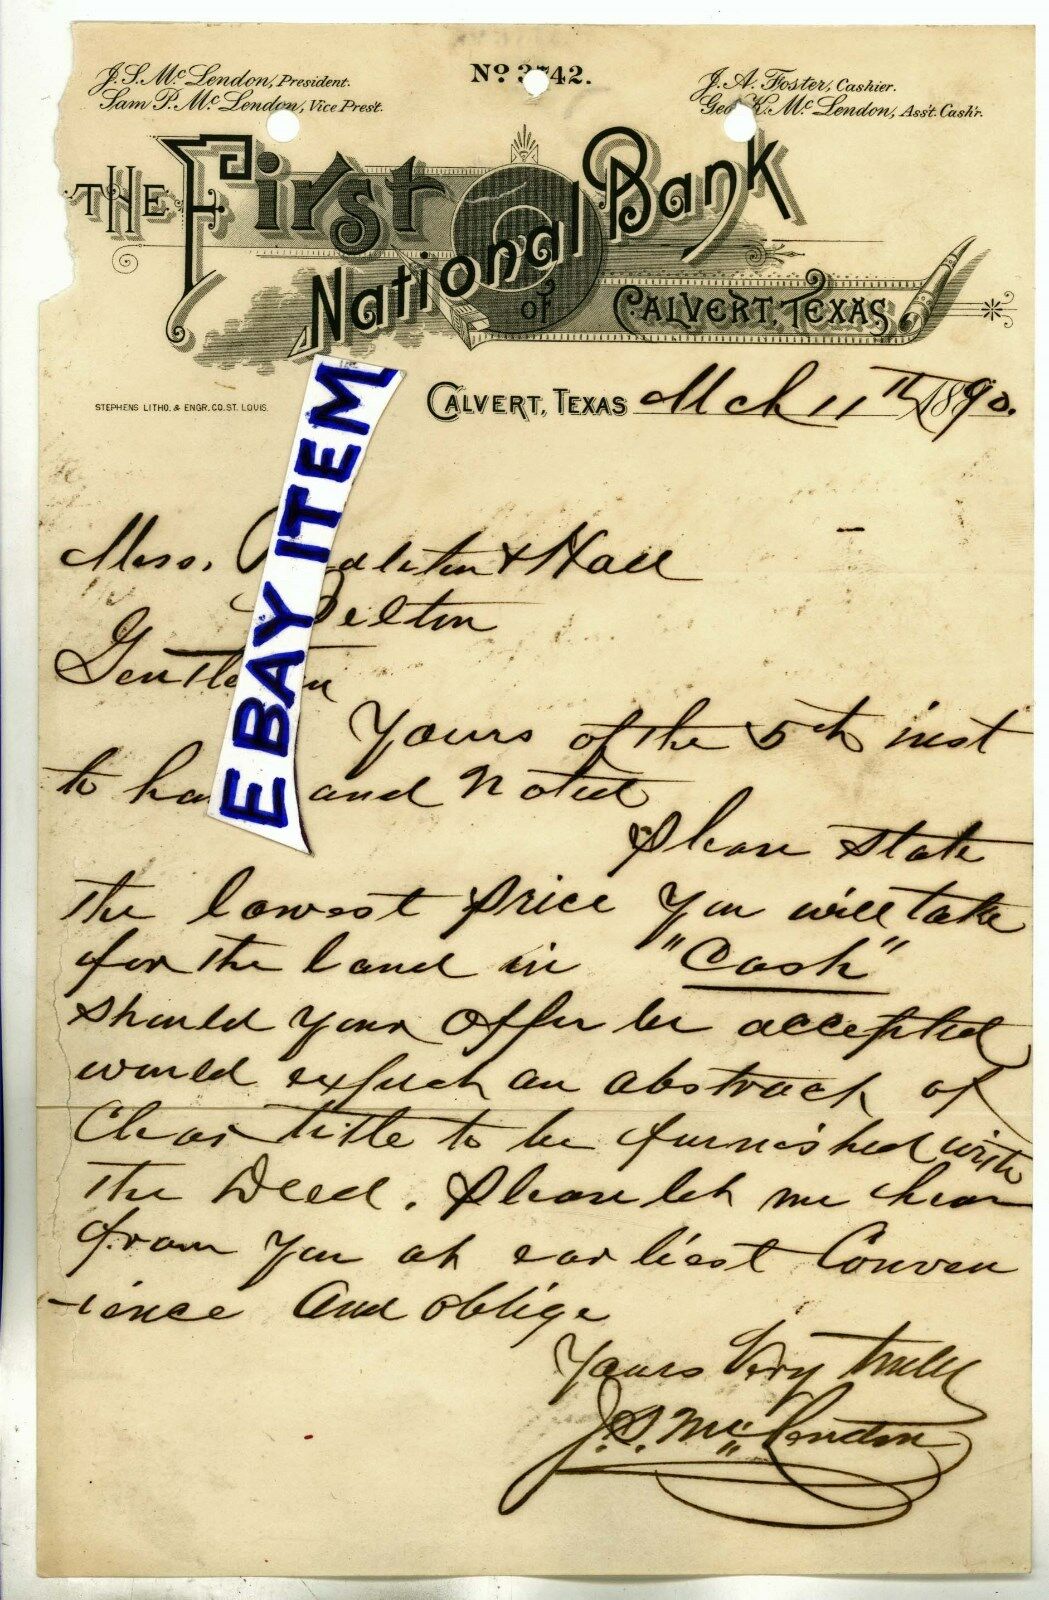 J. S. Mc Lendon, President.
Sam P. Mc Lendon, Vice Prest.
No 42.
J. A. Foster, Cashier.
Geo K. Mc Lendon, Ass't. Cash'r.
THE First National Bank
OF CALVERT, TEXAS
STEPHENS LITHO. & ENGR. CO. ST. LOUIS.
CALVERT, TEXAS Mch 11th 1890.
EBAY ITEM
Mess, & Hall
Belton
Gentlemen
Yours of the 5th inst
to hand and Noted
please state
the lowest price you will take
for the land in "Cash"
should your offer be accepted
would expect an abstract of
Clear title to be furnished with
the Deed. please let me hear
from you at earliest Conven
-ience And oblige
Yours Very truly
J. S. McLendon